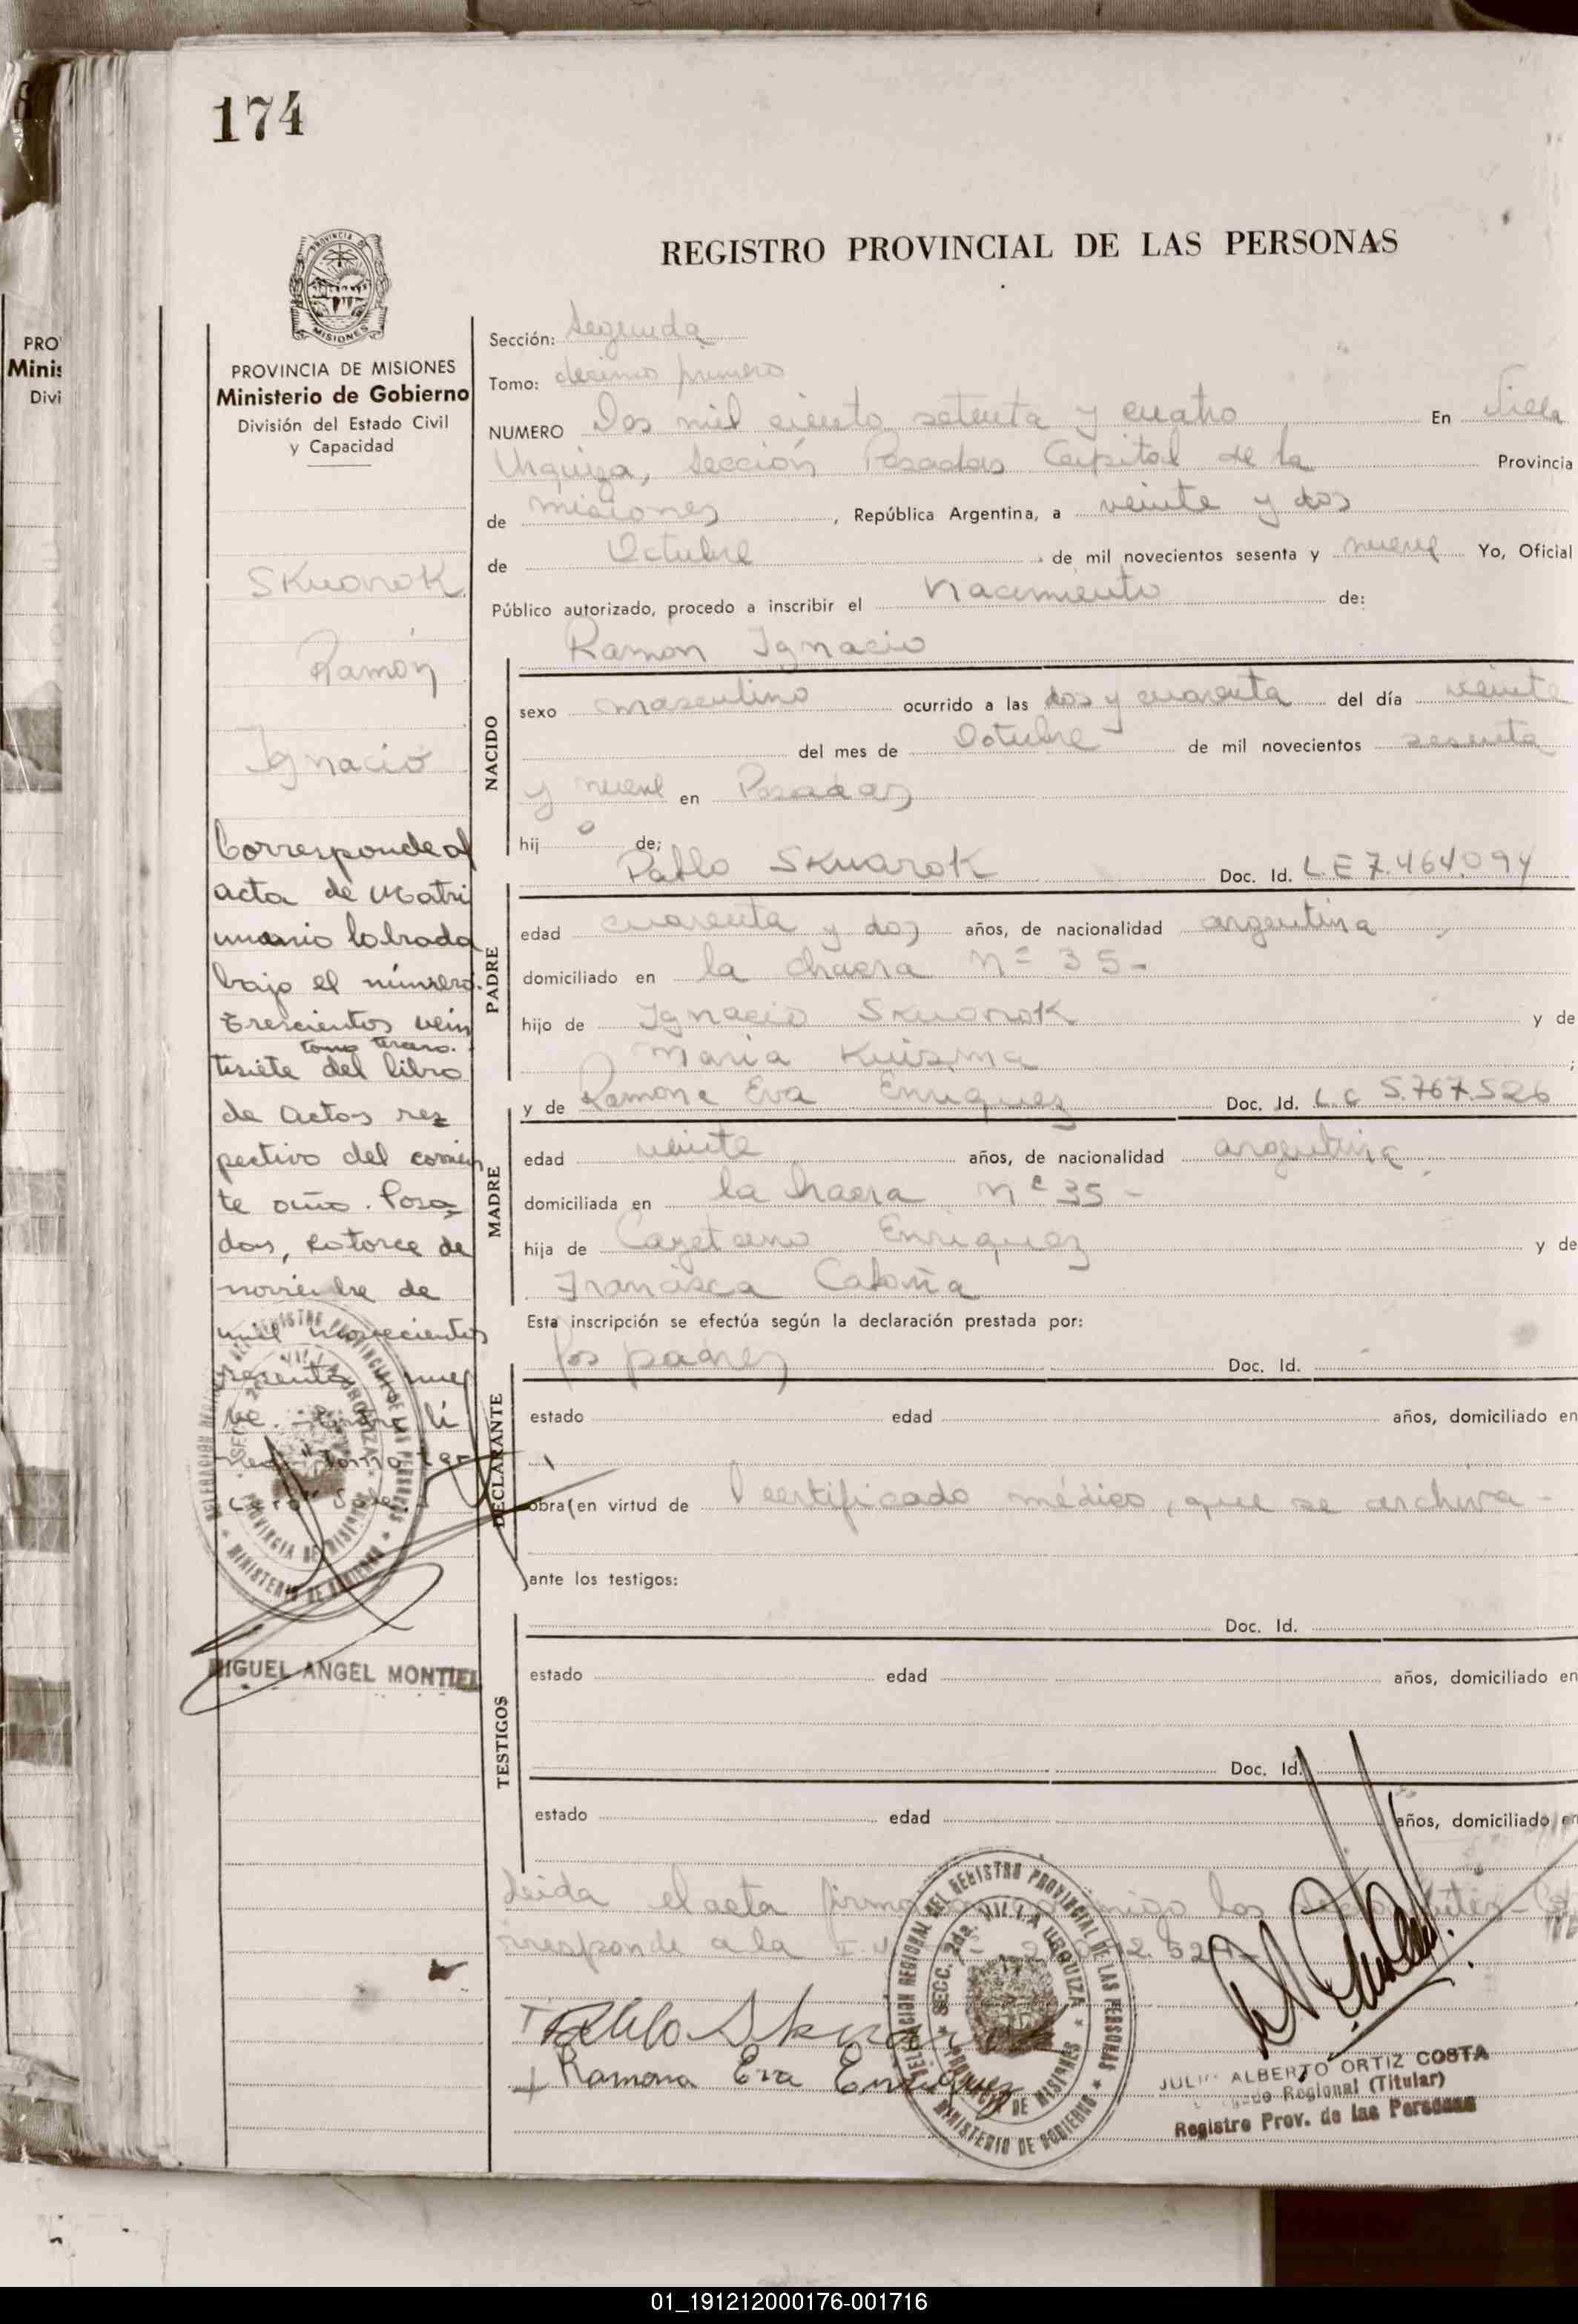 174
REGISTRO PROVINCIAL DE LAS PERSONAS
PROVINCIA DE MISIONES
Ministerio de Gobierno
División del Estado Civil
y Capacidad
Skuarok
Ramón
Ignacio
Corresponde al
acta de Matri
monio labrada
bajo el número
trescientos vein
tomo tercero.
tisiete del libro
de actas res
pectivo del corrien
te año. Posa
das, catorce de
noviembre de
mil novecientos
sesenta y nue
ve.
MIGUEL ANGEL MONTIEL
Sección: Segunda
Tomo: decimo primero
NUMERO Dos mil ciento setenta y cuatro En Villa
Urquiza, Sección Posadas Capital de la Provincia
de misiones, República Argentina, a veinte y dos
de Octubre de mil novecientos sesenta y nueve Yo, Oficial
Público autorizado, procedo a inscribir el nacimiento de:
Ramon Ignacio
NACIDO
sexo masculino ocurrido a las dos y cuarenta del día veinte
del mes de Octubre de mil novecientos sesenta
y nueve en Posadas
hijo de;
Pablo Skuarok Doc. Id. L.E 7.464.094
PADRE
edad cuarenta y dos años, de nacionalidad argentina
domiciliado en la chacra Nº 35-
hijo de Ignacio Skuarok y de
Maria Kuizma;
y de Ramona Eva Enriquez Doc. Id. L.C 5.767.526
MADRE
edad veinte años, de nacionalidad argentina
domiciliada en la hacra Nº 35-
hija de Cayetano Enriquez y de
Francisca Cataña
Esta inscripción se efectúa según la declaración prestada por:
los padres Doc. Id.
DECLARANTE
estado edad años, domiciliado en
obra(en virtud de certificado médico, que se archiva-
ante los testigos:
Doc. Id.
TESTIGOS
estado edad años, domiciliado en
Doc. Id.
estado edad años, domiciliado en
Leida el acta firman conmigo los
rresponde a la
Pablo Skuarok
Ramona Eva Enriquez
DELEGACION REGIONAL DEL REGISTRO PROVINCIAL DE LAS PERSONAS
SECC. 2da. VILLA URQUIZA
PROVINCIA DE MISIONES
MINISTERIO DE GOBIERNO
JULIO ALBERTO ORTIZ COSTA
Regional (Titular)
Registro Prov. de las Personas
PRO
Minis
Divi
01_191212000176-001716